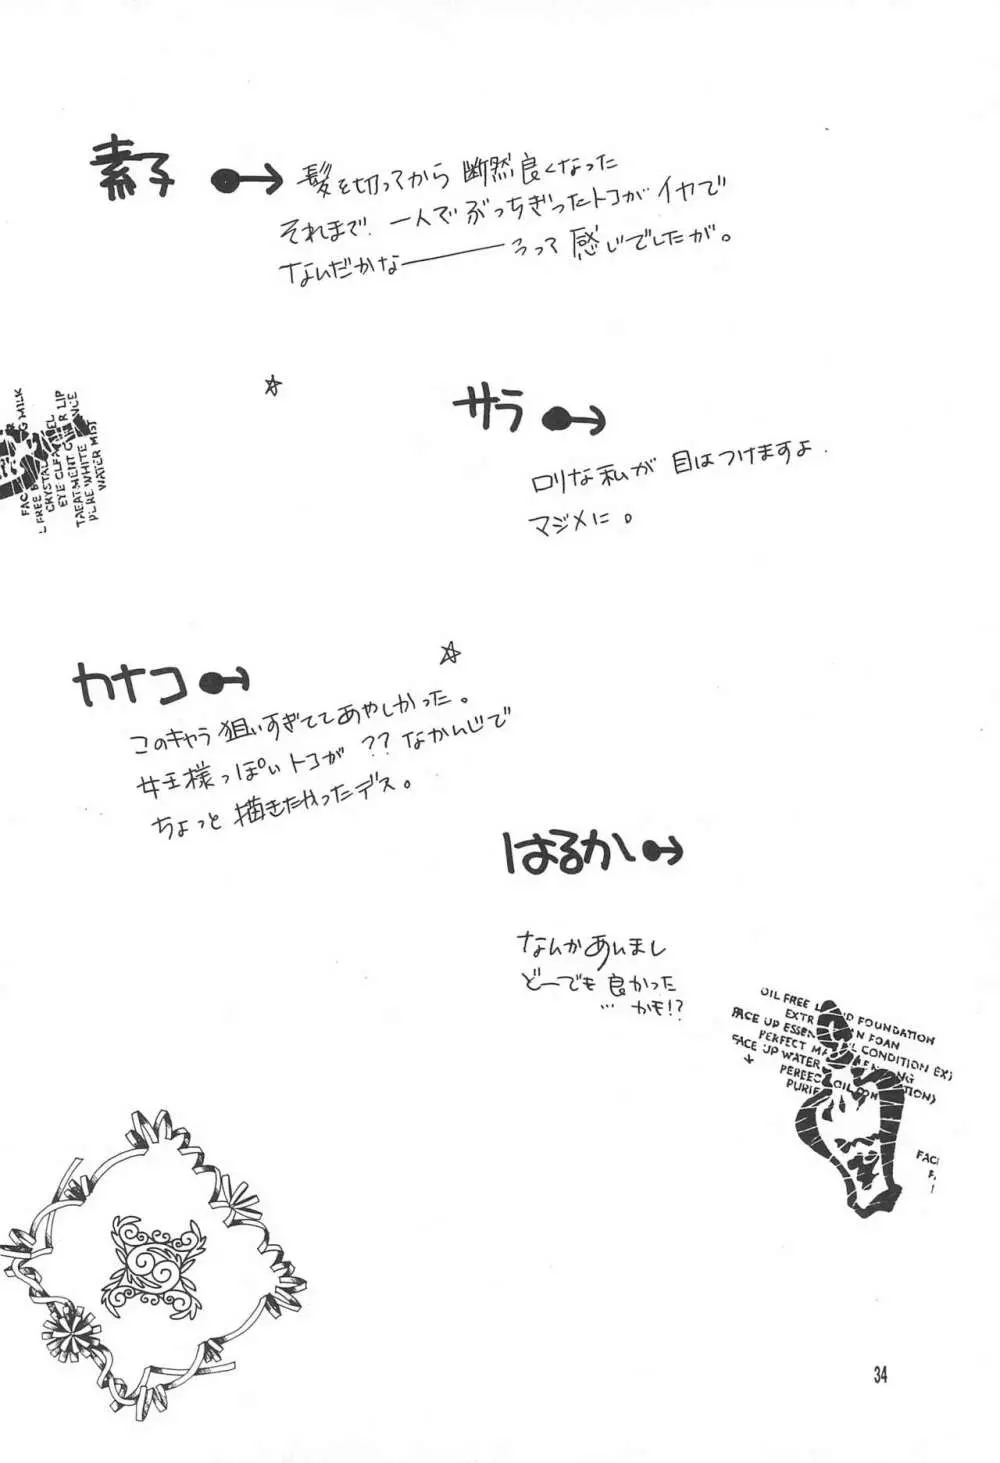 素子
髪を切ってから 断然良くなった
それまで、一人でぶっちぎったトコがイヤで
なんだかな―――うって感じでしたが。
サラ
ロリな私が 目はつけますよ.
マジメに。
カナコ
このキャラ狙いすぎててあやしかった。
女王様っぽいトコが ??なかんじで
ちょっと描きたやったデス。
はるか
なんかあいまし
どーでも良かった
… かも!?
MILK
FREE
CRYSTAL
EYE
LIP
TREATMENT
PURE WHITE
WATER MIST
OIL FREE
FOUNDATION
FOAN
FACE UP
CONDITION
PERFECT
FACE UP WATER
34